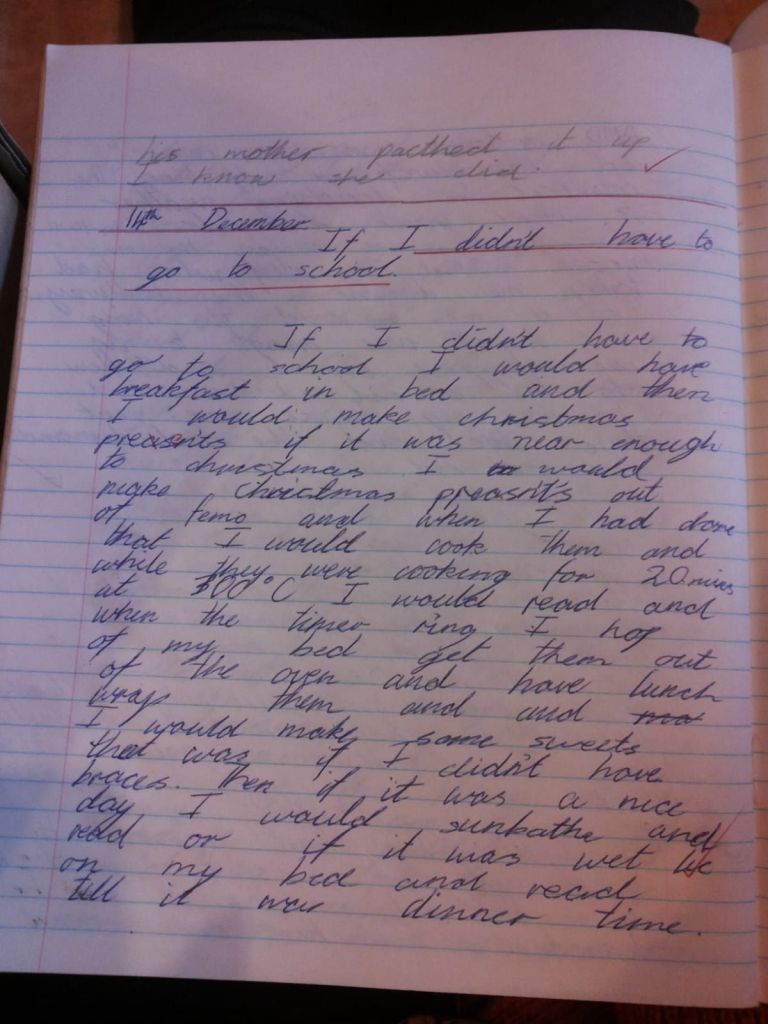 his mother pacthed it up
I know she did.
14th December
If I didn't have to
go to school.
If I didn't have to
go to school I would have
breakfast in bed and then
I would make christmas
preasnts if it was near enough
to christmas I would
make Christmas preasnt's out
of femo and when I had done
that I would cook them and
while they were cooking for 20 mins
at 300°C I would read and
when the timer ring I hop
of my bed get them out
of the oven and have lunch
wrap them and and ma
I would make some sweets
that was if I didn't have
braces. Then if it was a nice
day I would sunbathe and
read or if it was wet lie
on my bed and read
till it was dinner time.